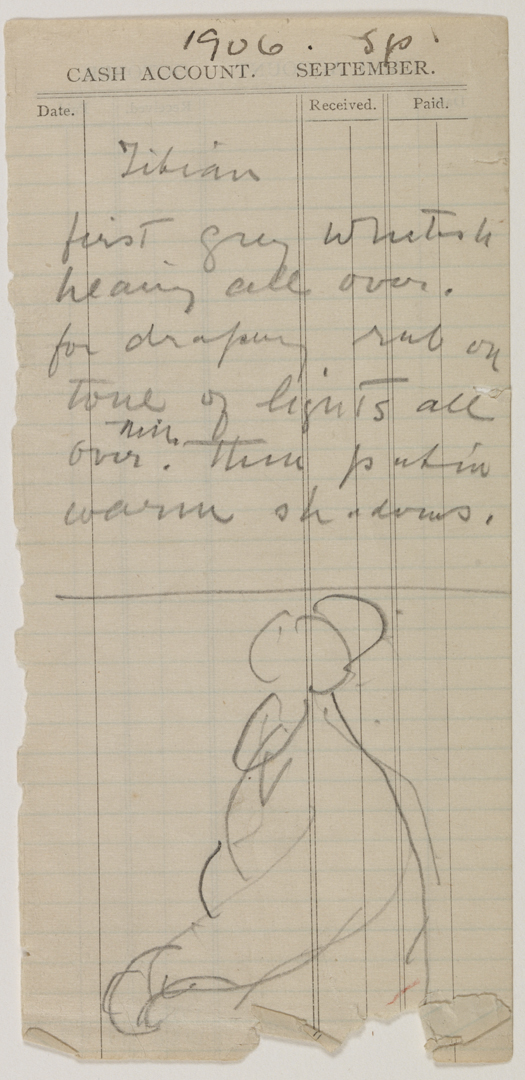 1906. Sp.
CASH ACCOUNT. SEPTEMBER.
Date. Received. Paid.
Titian
first grey whitish
heaing all over.
for drapery rub on
tone of lights all
thin
over. Then put in
warm shadows.